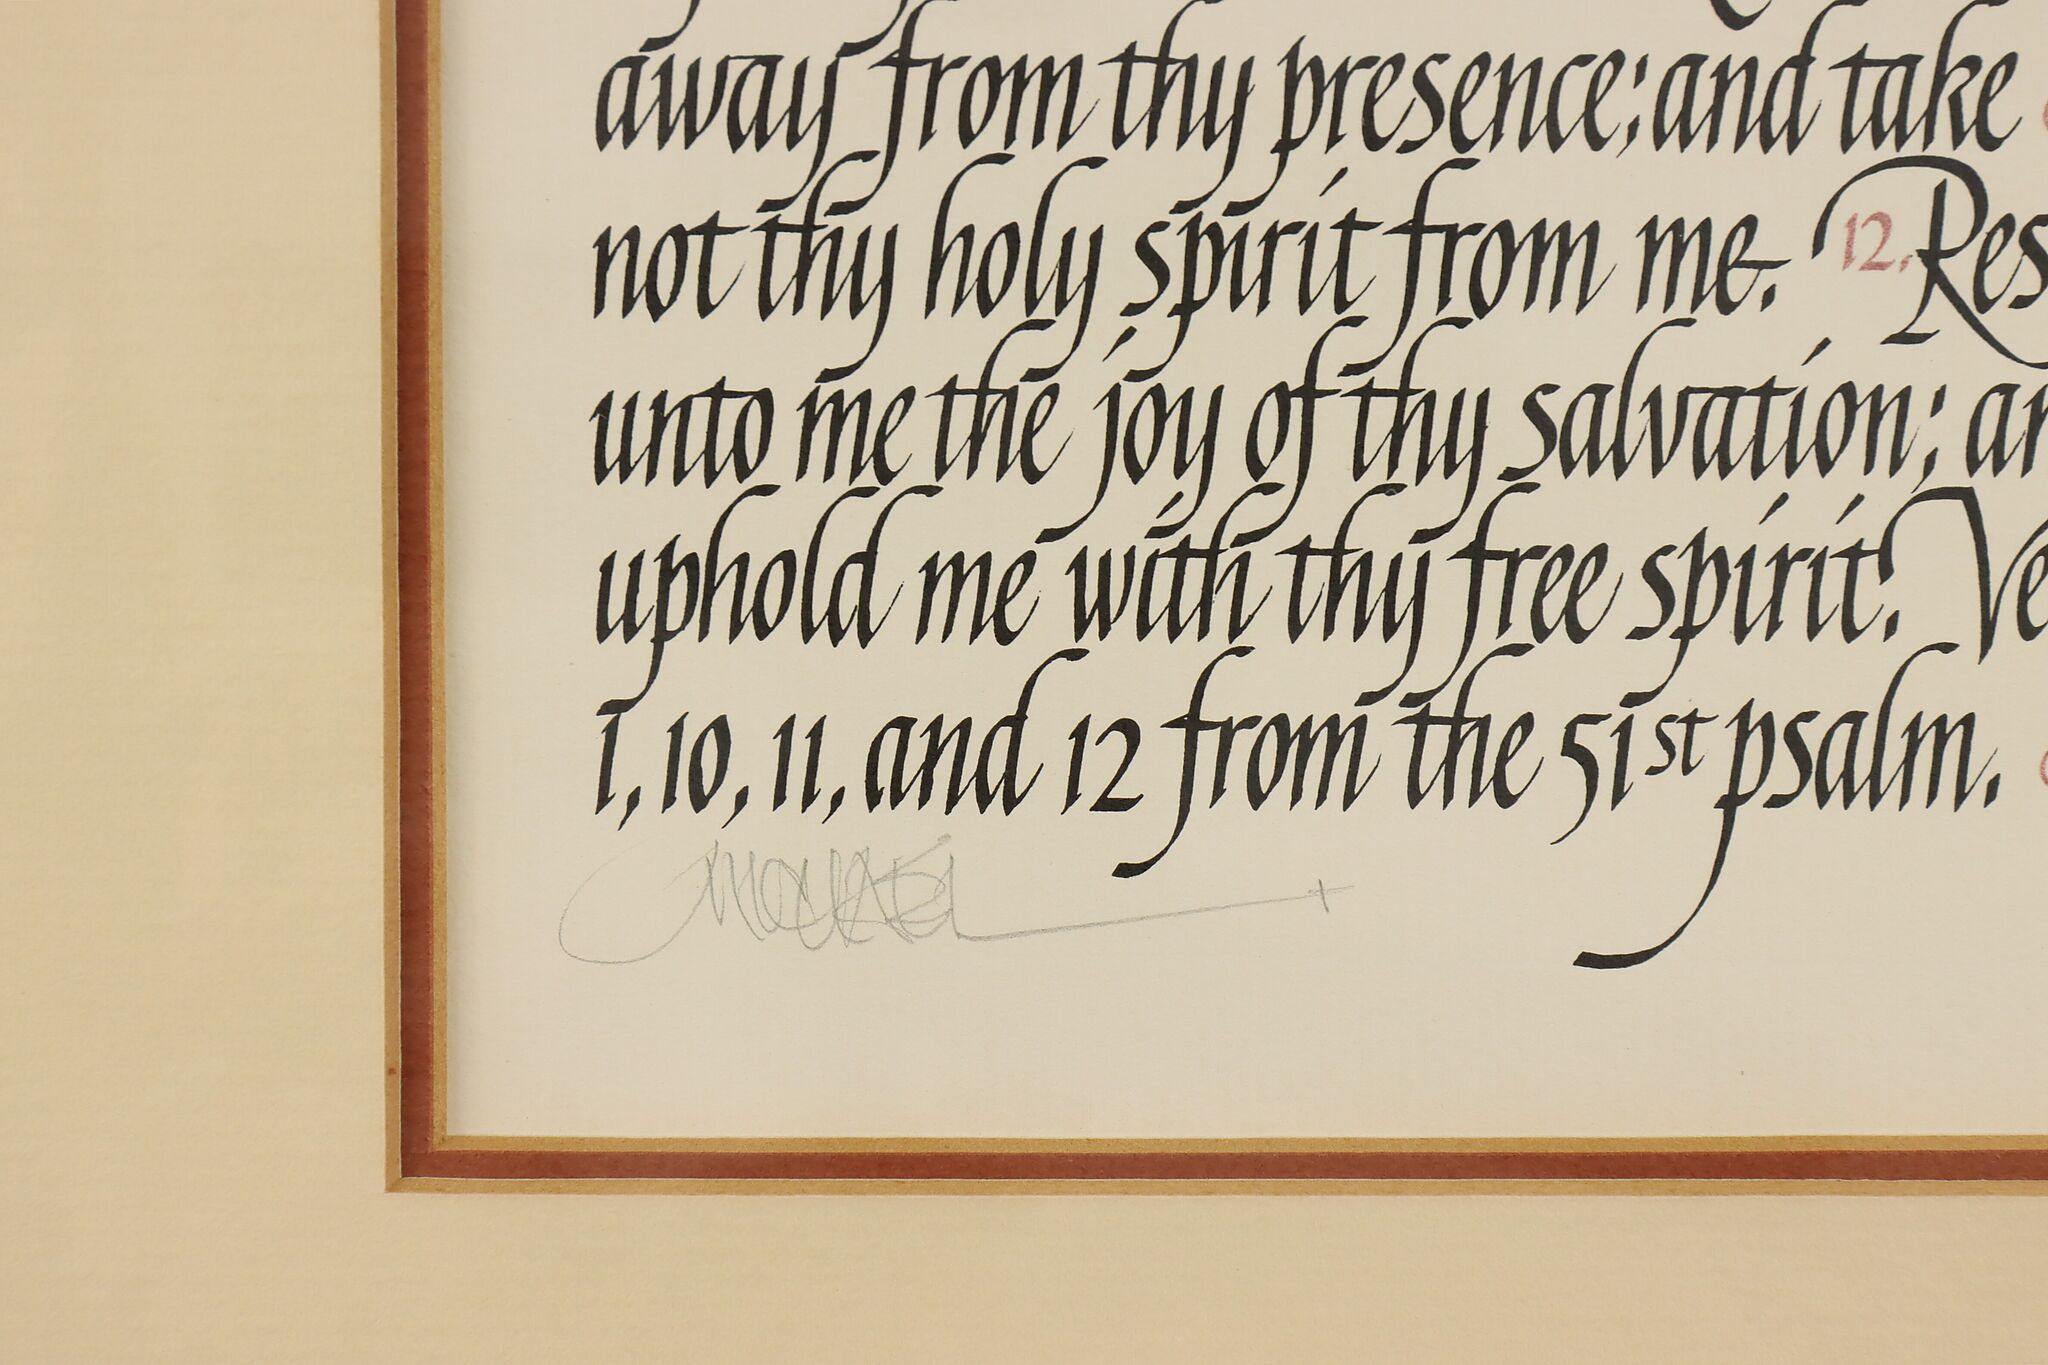 away from thy presence; and take
not thy holy spirit from me. 12. Res
unto me the joy of thy salvation; an
uphold me with thy free spirit. Ve
1, 10, 11, and 12 from the 51st psalm.